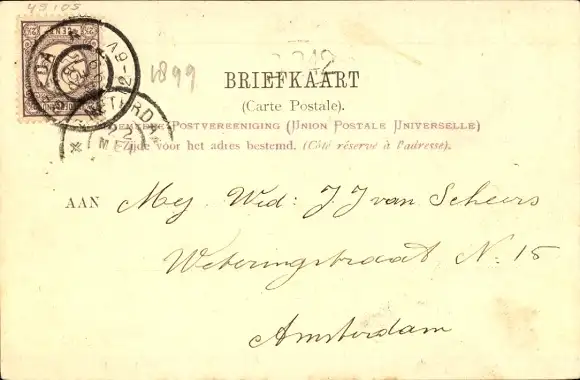 45105
1899
BRIEFKAART
(Carte Postale).
ALGEMEENE POSTVEREENIGING (UNION POSTALE UNIVERSELLE)
Zijde voor het adres bestemd. (Côté réservé à l'adresse).
AAN Mej. Wed: J. J van Scheers
Weteringstraat N. 15
Amsterdam